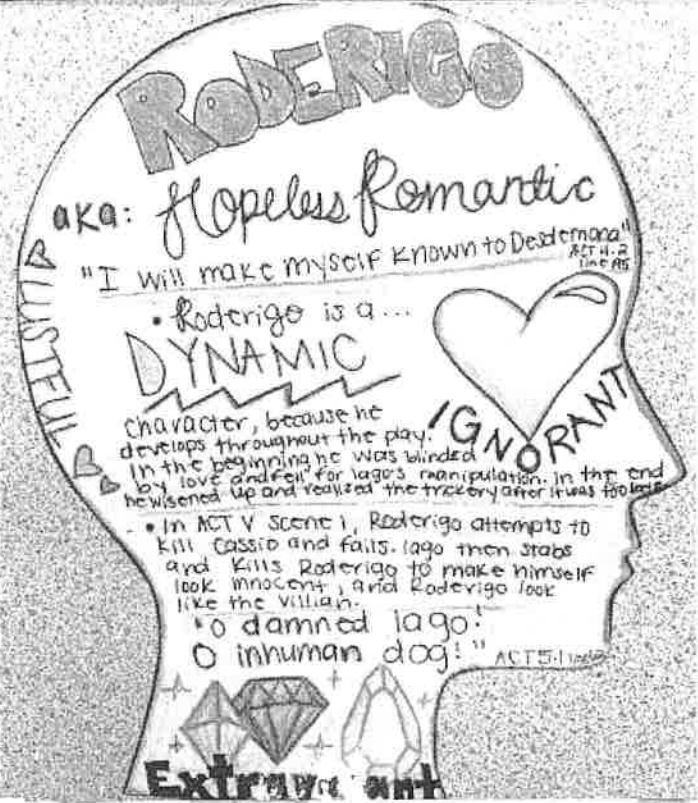 RODERIGO
aka: Hopeless Romantic
"I will make myself known to Desdemona"
ACT 4.2
line
LUSTFUL
• Roderigo is a...
DYNAMIC
IGNORANT
character, because he
develops throughout the play.
In the beginning he was blinded
by love and fell for Iago's manipulation. In the end
he wisened up and realized the trickery after it was too late
• In ACT V scene 1, Roderigo attempts to
kill Cassio and fails. Iago then stabs
and kills Roderigo to make himself
look innocent, and Roderigo look
like the villian.
"O damned Iago!
O inhuman dog!" ACT 5.1